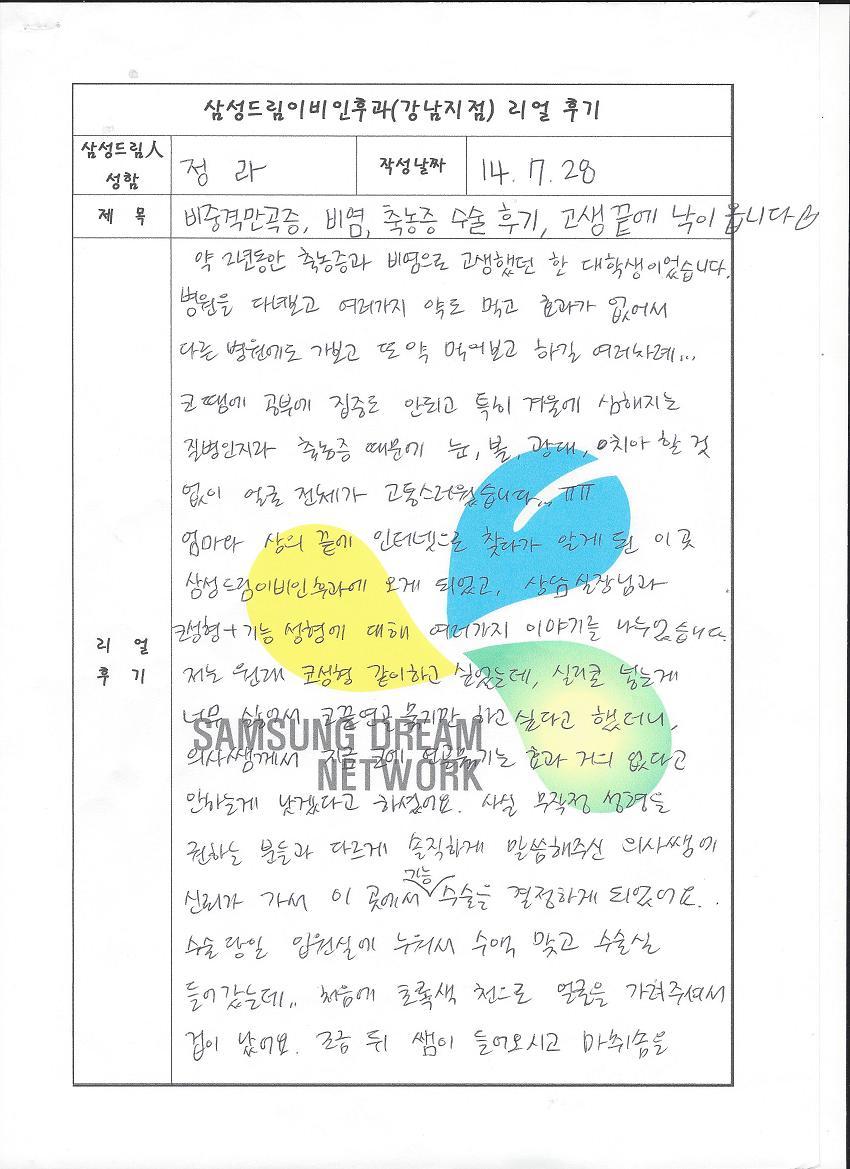 삼성드림이비인후과(강남지점) 리얼 후기
삼성드림人 성함 정 라 작성날짜 14. 7. 28
제 목 비중격만곡증, 비염, 축농증 수술 후기, 고생 끝에 낙이 옵니다
약 2년동안 축농증과 비염으로 고생했던 한 대학생이었습니다.
병원을 다녀보고 여러가지 약도 먹고 효과가 없어서
다른 병원에도 가보고 또 약 먹어보고 하길 여러차례...
코 땜에 공부에 집중도 안되고 특히 겨울에 심해지는
질병인지라 축농증 때문에 눈, 볼, 광대, 이치아 할 것
없이 얼굴 전체가 고통스러웠습니다... ㅠㅠ
엄마와 상의 끝에 인터넷으로 찾다가 알게 된 이 곳
삼성드림이비인후과에 오게 되었고, 상담실장님과
코성형+기능 성형에 대해 여러가지 이야기를 나누었습니다.
리 얼
후 기
저는 원래 코성형 같이하고 싶었는데, 실리콘 넣는게
너무 싫어서 코끝연골묶기만 하고 싶다고 했더니,
SAMSUNG DREAM
NETWORK
의사쌤께서 지금 코에 연골묶기는 효과 거의 없다고
안하는게 낫겠다고 하셨어요. 사실 무작정 성형을
권하는 분들과 다르게 솔직하게 말씀해주신 의사쌤에
신뢰가 가서 이 곳에서 기능 수술을 결정하게 되었어요..
수술 당일 입원실에 누워서 수액 맞고 수술실
들어갔는데.. 처음에 초록색 천으로 얼굴을 가려주셔서
겁이 났어요. 조금 뒤 쌤이 들어오시고 마취솜을